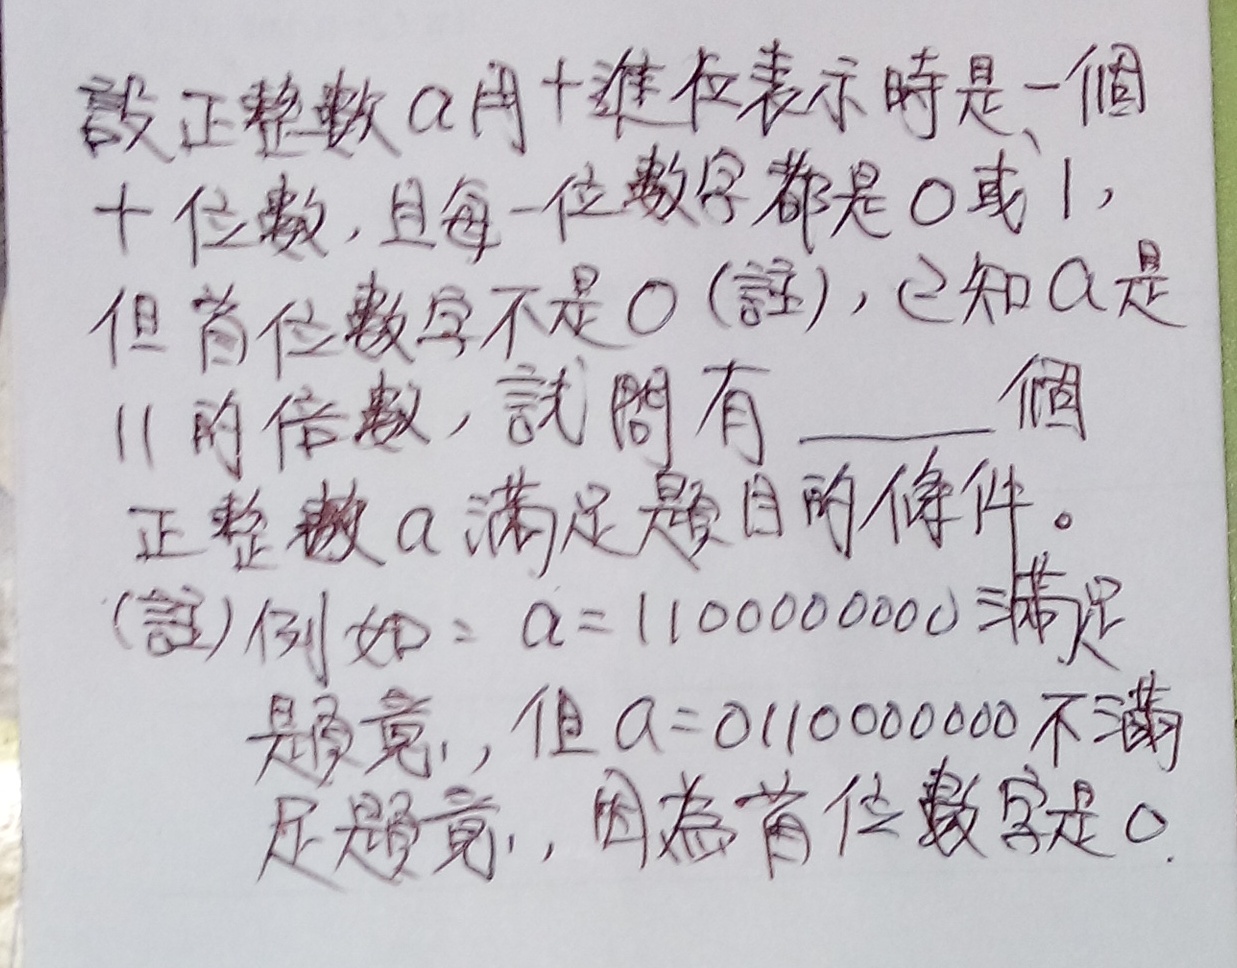 設正整數a用十進位表示時是一個
十位數，且每一位數字都是0或1，
但首位數字不是0(註)，已知a是
11的倍數，試問有______個
正整數a滿足題目的條件。
(註)例如：a=1100000000滿足
題意，但a=0110000000不滿
足題意，因為首位數字是0.